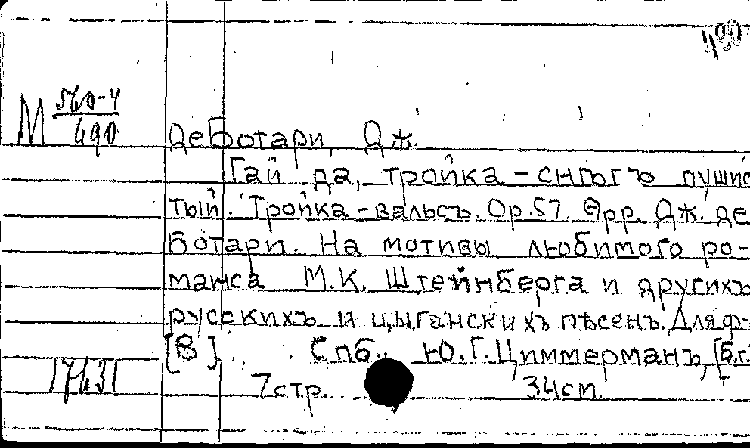 490
М 560-4
490
ДеБотари, Дж.
Гай да, тройка - снѣгъ пушис
тый. Тройка-вальсъ. Op.57. Арр. Дж. де
Ботари. На мотивы любимого ро-
манса М.К. Штейнберга и другихъ
русскихъ и цыганскихъ пѣсенъ. Для ф-
[В] Спб., Ю.Г. Циммерманъ, [б.г.]
17431
7стр. 34см.